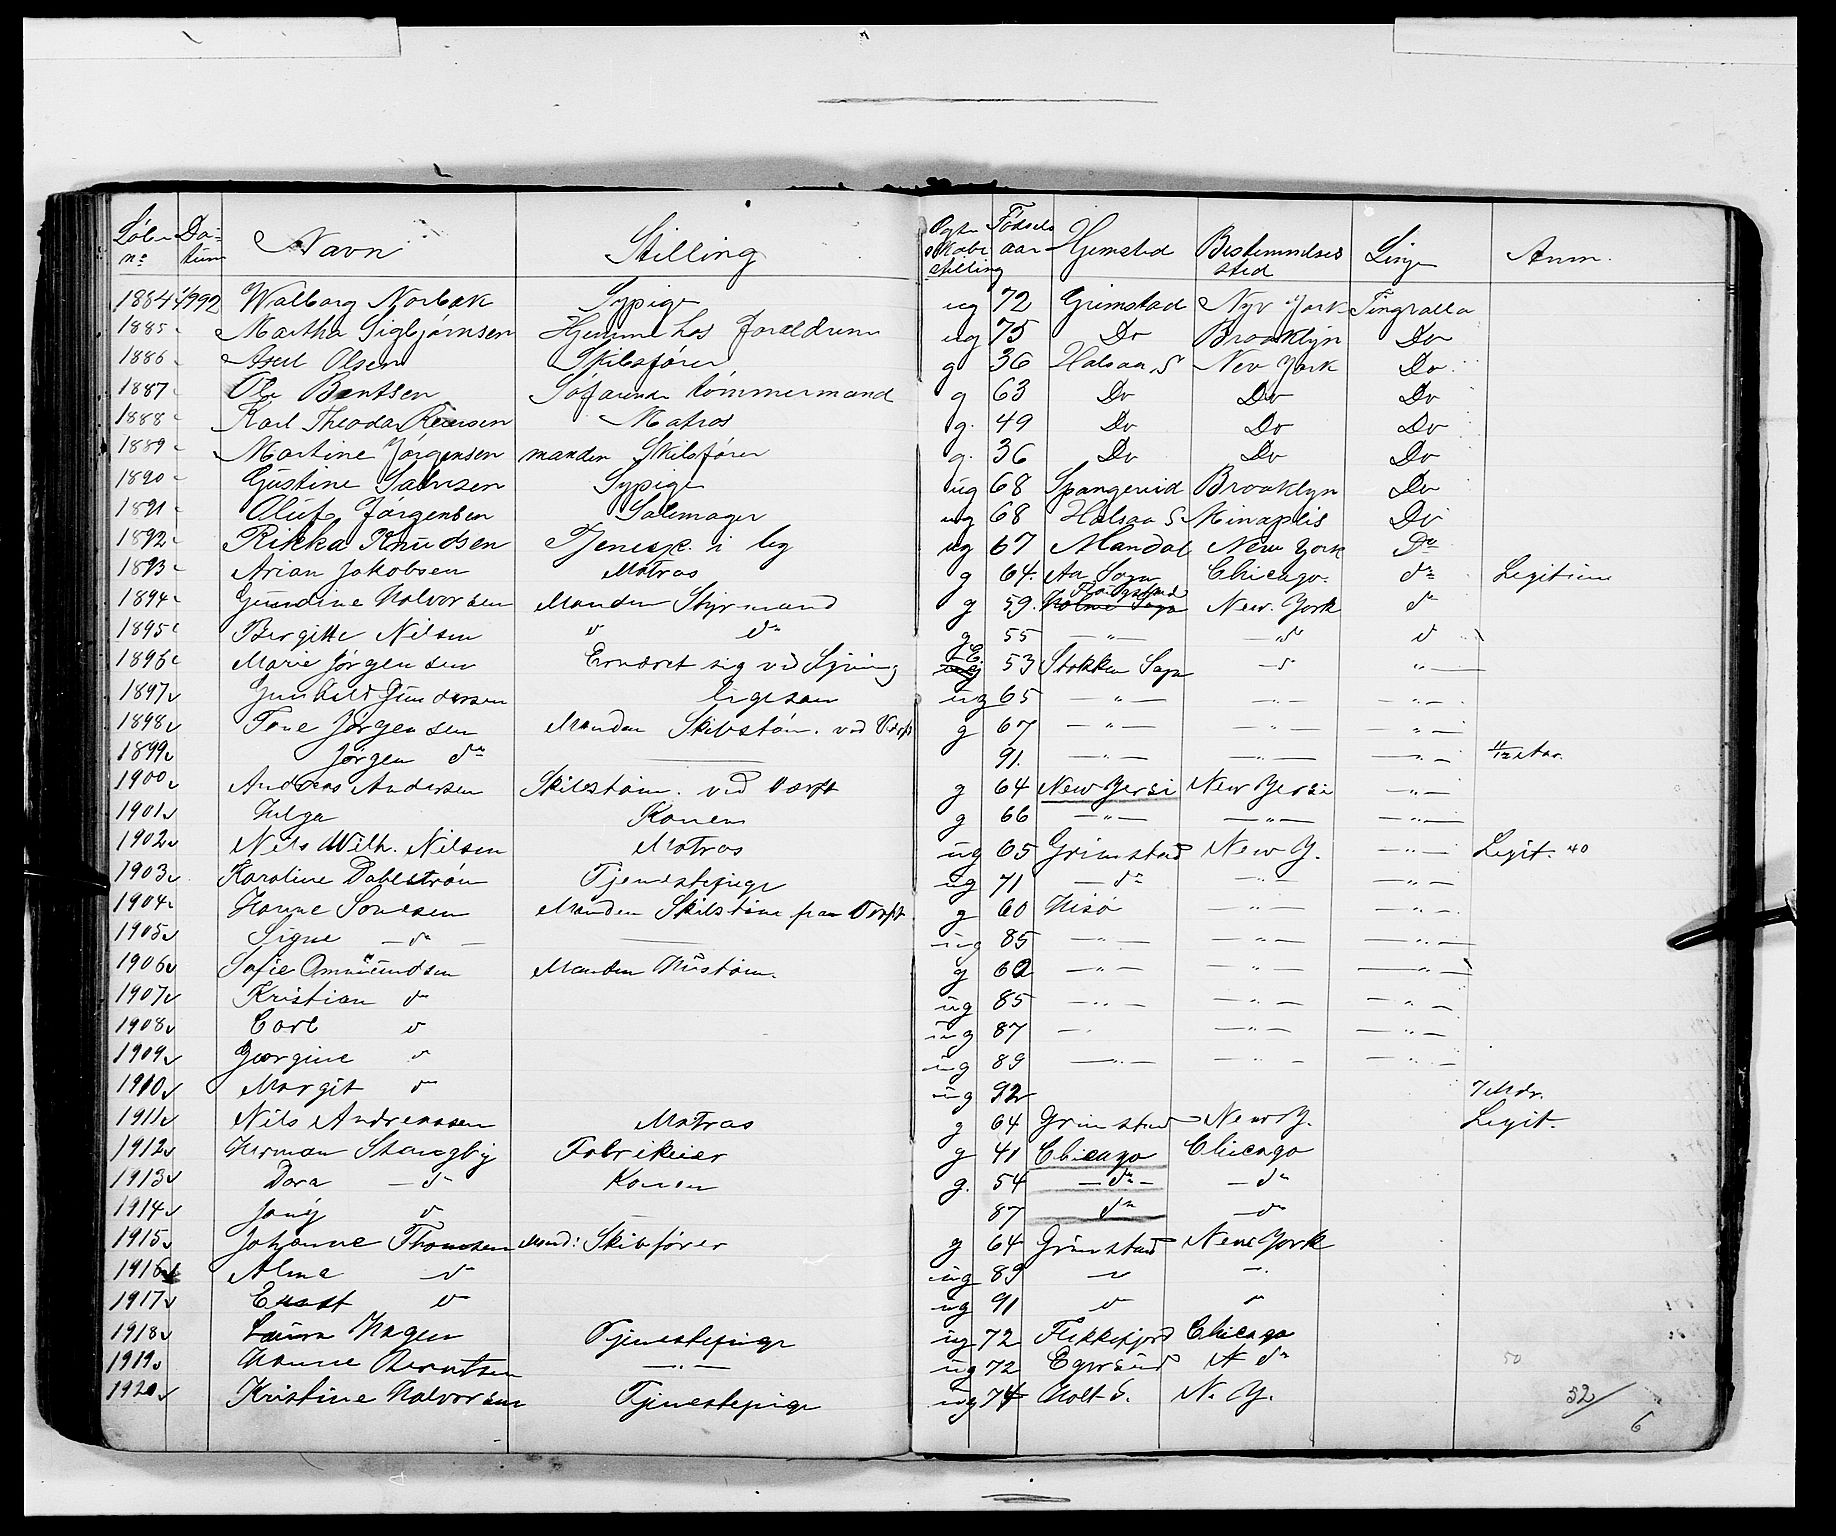 Løbe n° Datum Navn Stilling Ægteskabsstilling Fødselsaar Hjemsted Bestemmelsessted Linje Anm.
1884 4/9 92 Walborg Norbæk Sypige ug 72 Grimstad Nyv York Tingvalla
1885 Martha Sigbjørnsen Hjemme hos forældrene ug 75 Do Brooklyn Do
1886 Axel Olsen Skibsfører g 36 Halsaa S New York Do
1887 Ole Bentsen Søfarende tømmermand g 63 Do Do Do
1888 Karl Theodor Matros g. 49 Do Do Do
1889 Martine Jørgensen manden Skibsfører g. 36 Do Do Do
1890 Gustine Salvesen Sypige ug 68 Spangereid Brooklyn Do
1891 Oluf Jørgensen Salemager ug 68 Halsaa S Minaplis Do
1892 Rikka Knudsen Tjenespige ug 67 Mandal New York Do
1893 Arian Jakobsen Matros g 64. Aa Sogn Chicago. do Legitim
1894 Gundine Halvorsen Manden Styrmand g 59. Holme Sogn New. York do
1895 Bergitte Nilsen " do g 55 — " — — do do
1896 Marie Jørgensen Ernæret sig ved Syning 53 Stokken Sogn — " " —
1897 Gunhild Gundersen ligesaa ug 65 — " — — " — — " —
1898 Tone Jørgensen Manden Skibstøm. ved Værft g 67 — " — — " — — " —
1899 Jørgen do — 91. — " — — " — — " — 11/12 Aar.
1900 Andreas Andersen Skibstøm. ved Værft g 64 New Yersi New Yersi — " —
1901 Helga Konen g 66 — " — — " — — " —
1902 Nils Wilh. Nilsen Matros ug 65 Grimstad New Y. — " — Legit. 40
1903 Karoline Dahlstrøm Tjenestepige ug 71 — do — " — — " —
1904 Hanne Sonesen Manden Skibstøm paa Værft. g 60 Hisø — " — — " —
1905 Signe — do — — ug 85 — " — — " — — " —
1906 Sofie Ommundsen Manden Hustøm. g 62 — " — — " — — " —
1907 Kristian do ug 85 — " — — " — — " —
1908 Carl do ug 87 — " — " — — " —
1909 Georgine do ug 89 — " — — " — — " —
1910 Margit do ug 92 7 Mdr.
1911 Nils Andreassen Matros g 64 Grimstad New Y. Legit.
1912 Herman Stangby Fabrikeier g 41 Chicago Chicago
1913 Dora — do Konen g. 54 — do — — do
1914 do — 87 do — do
1915 Johanne Thomsen Mand: Skibfører g 64 Grimstad New York
1916 Alma do ug 89 do "
1917 Enast do ug 91 do "
1918 Laura Hagen Tjenestepige ug 72 Flekkefjord Chicago
1919 Hanne Berntsen — " — ug 72 Egersund do
1920 Kristine Halvorsen Tjenestepige ug 74 Holt S. N. Y.
50
52/
6